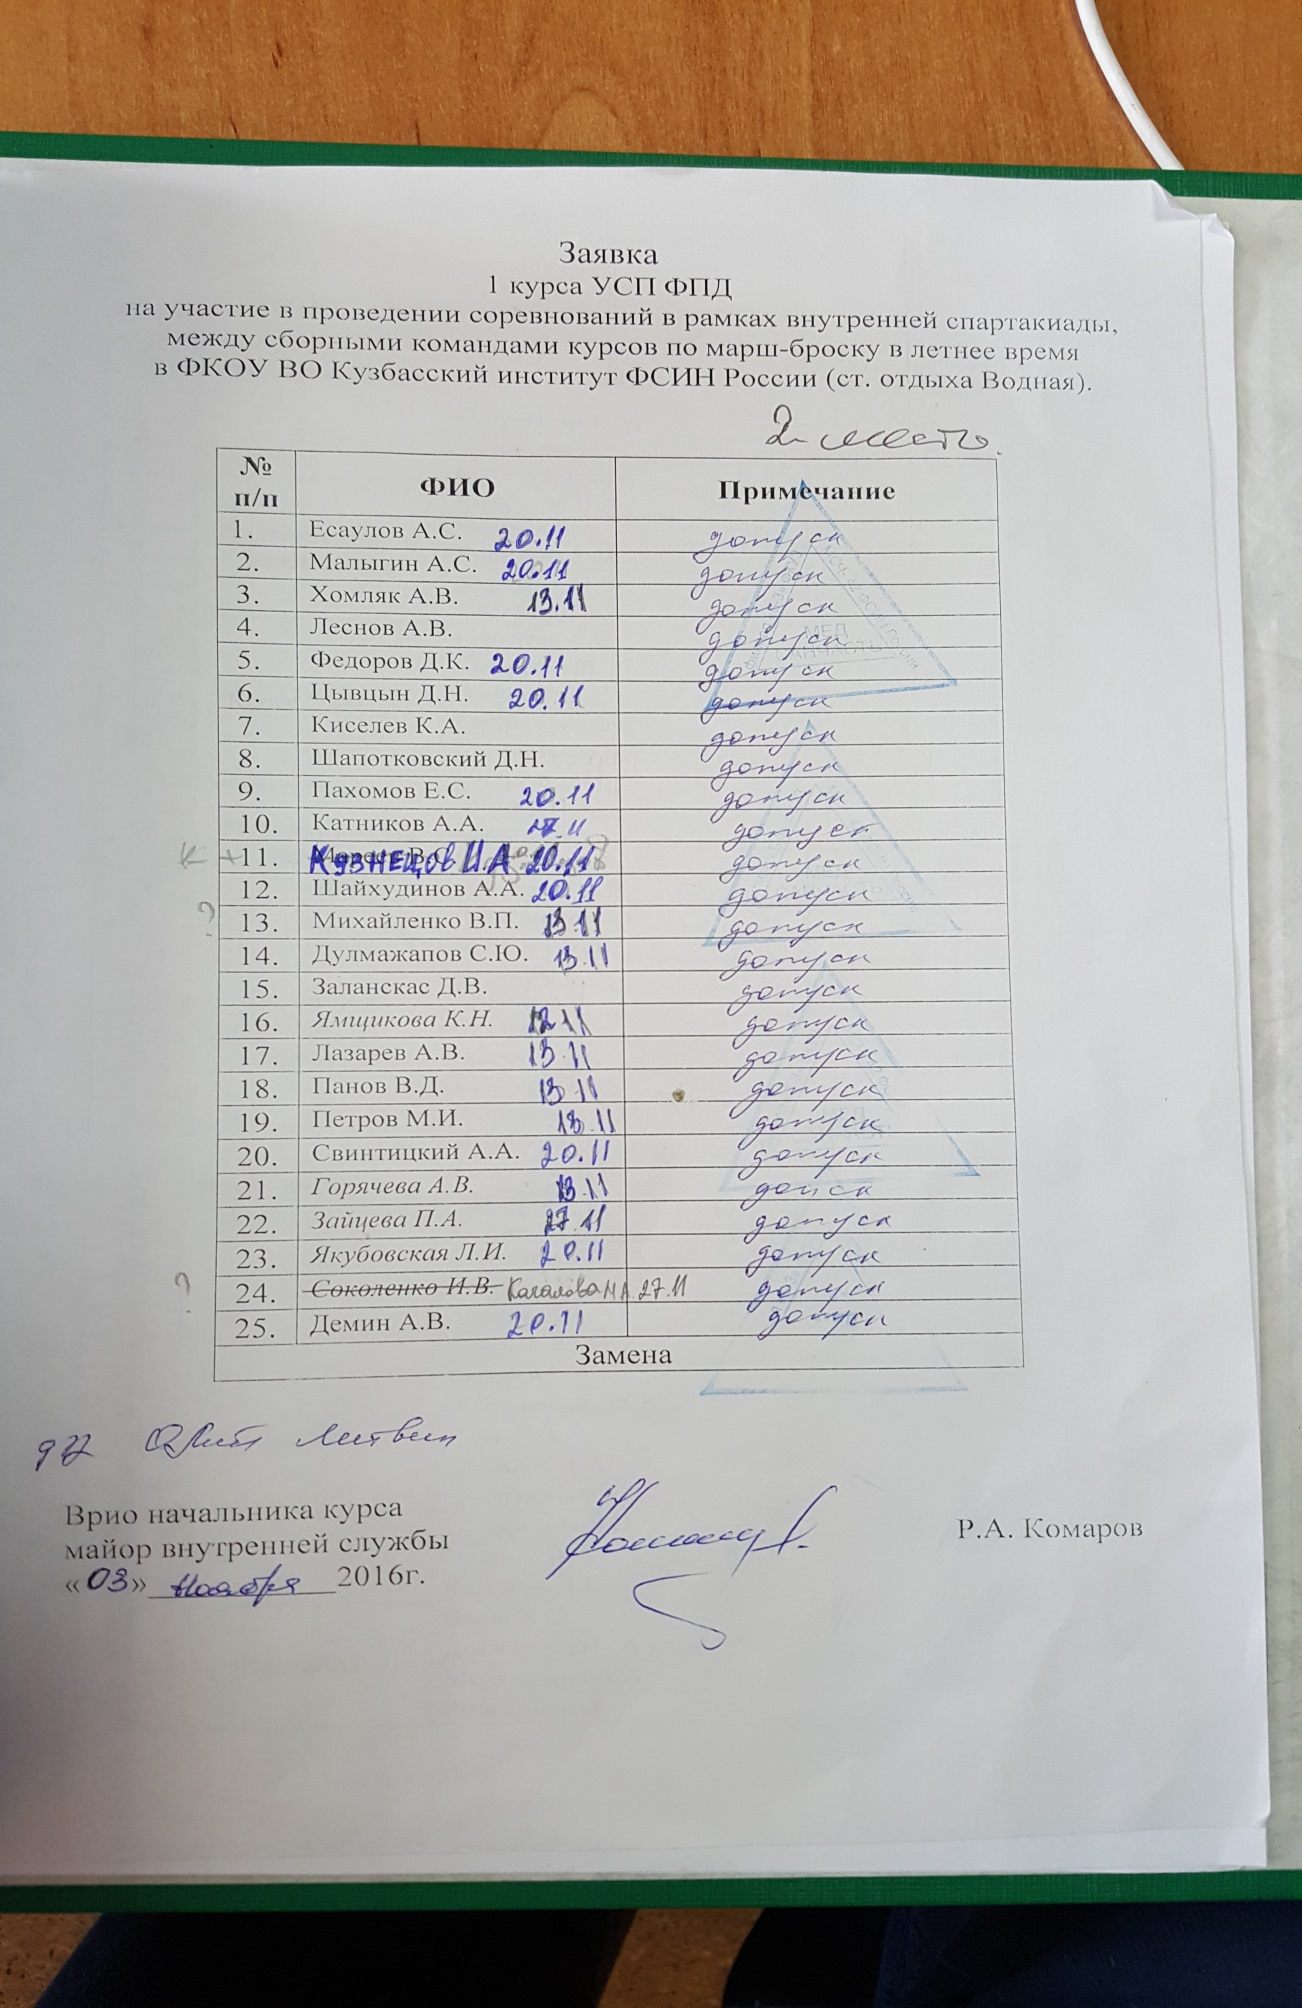 Заявка
1 курса УСП ФПД
на участие в проведении соревнований в рамках внутренней спартакиады,
между сборными командами курсов по марш-броску в летнее время
в ФКОУ ВО Кузбасский институт ФСИН России (ст. отдыха Водная).
2 место
№ п/п ФИО Примечание
1. Есаулов А.С. 20.11 допуск
2. Малыгин А.С. 20.11 допуск
3. Хомляк А.В. 13.11 допуск
4. Леснов А.В. допуск
5. Федоров Д.К. 20.11 допуск
6. Цывцын Д.Н. 20.11 допуск
7. Киселев К.А. допуск
8. Шапотковский Д.Н. допуск
9. Пахомов Е.С. 20.11 допуск
10. Катников А.А. 27.11 допуск
К + 11. Кузнецов И.А 20.11 допуск
12. Шайхудинов А.А. 20.11 допуск
? 13. Михайленко В.П. 13.11 допуск
14. Дулмажапов С.Ю. 13.11 допуск
15. Заланскас Д.В. допуск
16. Ямщикова К.Н. 12.11 допуск
17. Лазарев А.В. 13.11 допуск
18. Панов В.Д. 13.11 допуск
19. Петров М.И. 13.11 допуск
20. Свинтицкий А.А. 20.11 допуск
21. Горячева А.В. 13.11 допуск
22. Зайцева П.А. 27.11 допуск
23. Якубовская Л.И. 20.11 допуск
? 24. Соколенко И.В. 27.11 допуск
25. Демин А.В. 20.11 допуск
Замена
Литвин
Врио начальника курса
майор внутренней службы Р.А. Комаров
«03» Ноября 2016г.